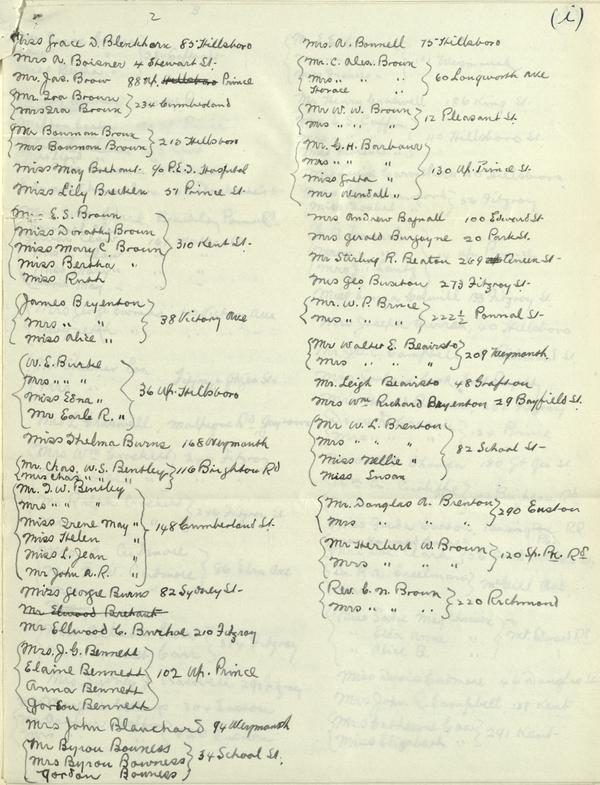 2
(i)
Miss Grace D. Blenkhorn 85 Hillsboro
Mrs A. Boisner 4 Stewart St.
Mr. Jas. Brow 88 Up. Hillsboro Prince
Mr. Ira Brown
Mrs Ira Brown 234 Cumberland
Mr Bowman Brown
Mrs Bowman Brown 213 Hillsboro
Miss May Brehaut 90 P.E.I. Hospital
Miss Lily Brecken 57 Prince St.
M-- E.S. Brown
Miss Dorothy Brown
Miss Mary C. Brown 310 Kent St.
Miss Bertha "
Miss Ruth
James Bryenton
Mrs " " 38 Victory Ave
Miss Alice "
W.E. Burke
Mrs " "
Miss Edna " 36 Up. Hillsboro
Mr Earle R. "
Miss Thelma Burns 168 Weymouth
Mr. Chas. W.S. Bentley 116 Brighton Rd
Mrs Chas " " "
Mr. T.W. Bentley
Mrs " " "
Miss Irene May " 148 Cumberland St.
Miss Helen "
Miss L. Jean "
Mr John A.R. "
Miss Georgie Burns 82 Sydney St-
Mr Elwood Brehaut
Mr Ellwood C. 210 Fitzroy
Mrs. J.G. Bennett
Elaine Bennett 102 Up. Prince
Anna Bennett
Gordon Bennett
Mrs John Blanchard 94 Weymouth
Mr Byron Bowness
Mrs Byron Bowness 34 School St.
Gordon Bowness
Mrs. A. Bonnell 75 Hillsboro
Mr. C. Alex. Brown
Mrs " " " 60 Longworth Ave
Horace "
Mr W. W. Brown
Mrs " " " 12 Pleasant St.
Mr. G. H. Barbour
Mrs " " "
Miss Greta " 130 Up. Prince St.
Mr Wendall "
Mrs Andrew Bagnall 100 Edward St-
Mrs Gerald Burgoyne 20 Park St.
Mr Stirling R. Beaton 269 Queen St-
Mrs Geo. Burston 273 Fitzroy St-
Mr. W. P. Bruce
Mrs " " " 222½ Pownal St-
Mr Walter E. Beairsto
Mrs " " " 209 Weymouth
Mr. Leigh Beairsto 48 Grafton
Mrs Wm Richard Bryenton 29 Bayfield St.
Mr W. L. Brenton
Mrs " " "
Miss Nellie " 82 School St-
Miss Susan
Mr. Douglas A. Brenton
Mrs " " " 290 Euston
Mr Herbert W. Brown
Mrs " " " 120 Sp. Pk. Rd
Rev. E. N. Brown
Mrs " " " 220 Richmond